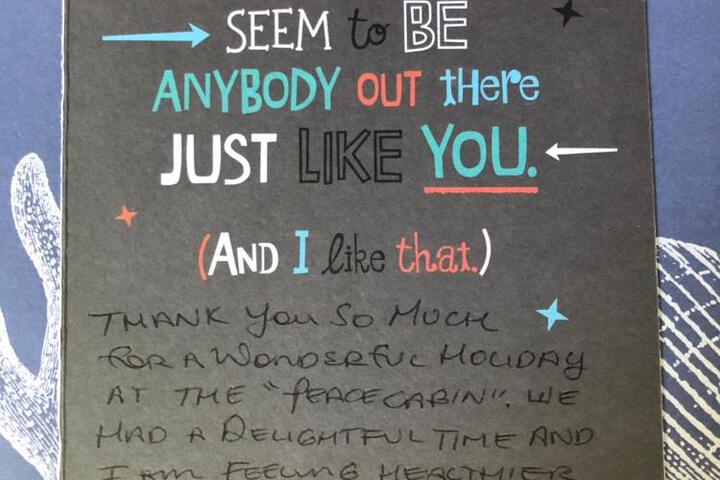 SEEM to BE
ANYBODY OUT tHere
JUST LIKE YOU.
(AND I like that.)
THANK YOU SO MUCH
FOR A WONDERFUL HOLIDAY
AT THE "PEACE CABIN". WE
HAD A DELIGHTFUL TIME AND
I AM FEELING HEALTHIER